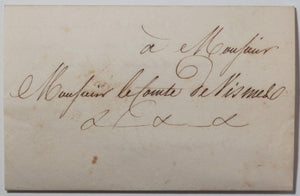 à Monsieur
Monsieur le Comte de Vismes